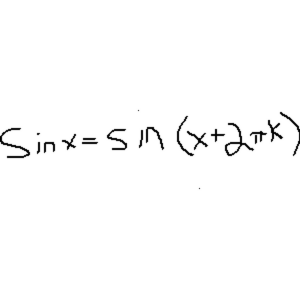 Sin x = Sin (x + 2πk)